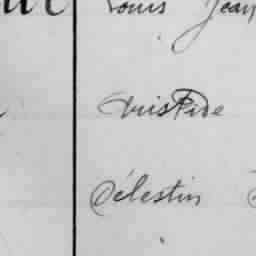 Louis Jean
Aristide
Célestin